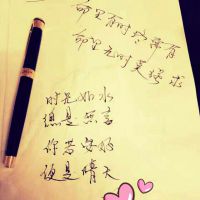 命里有时终需有
命里无时莫强求
时光如水
总是无言
你若安好
便是晴天